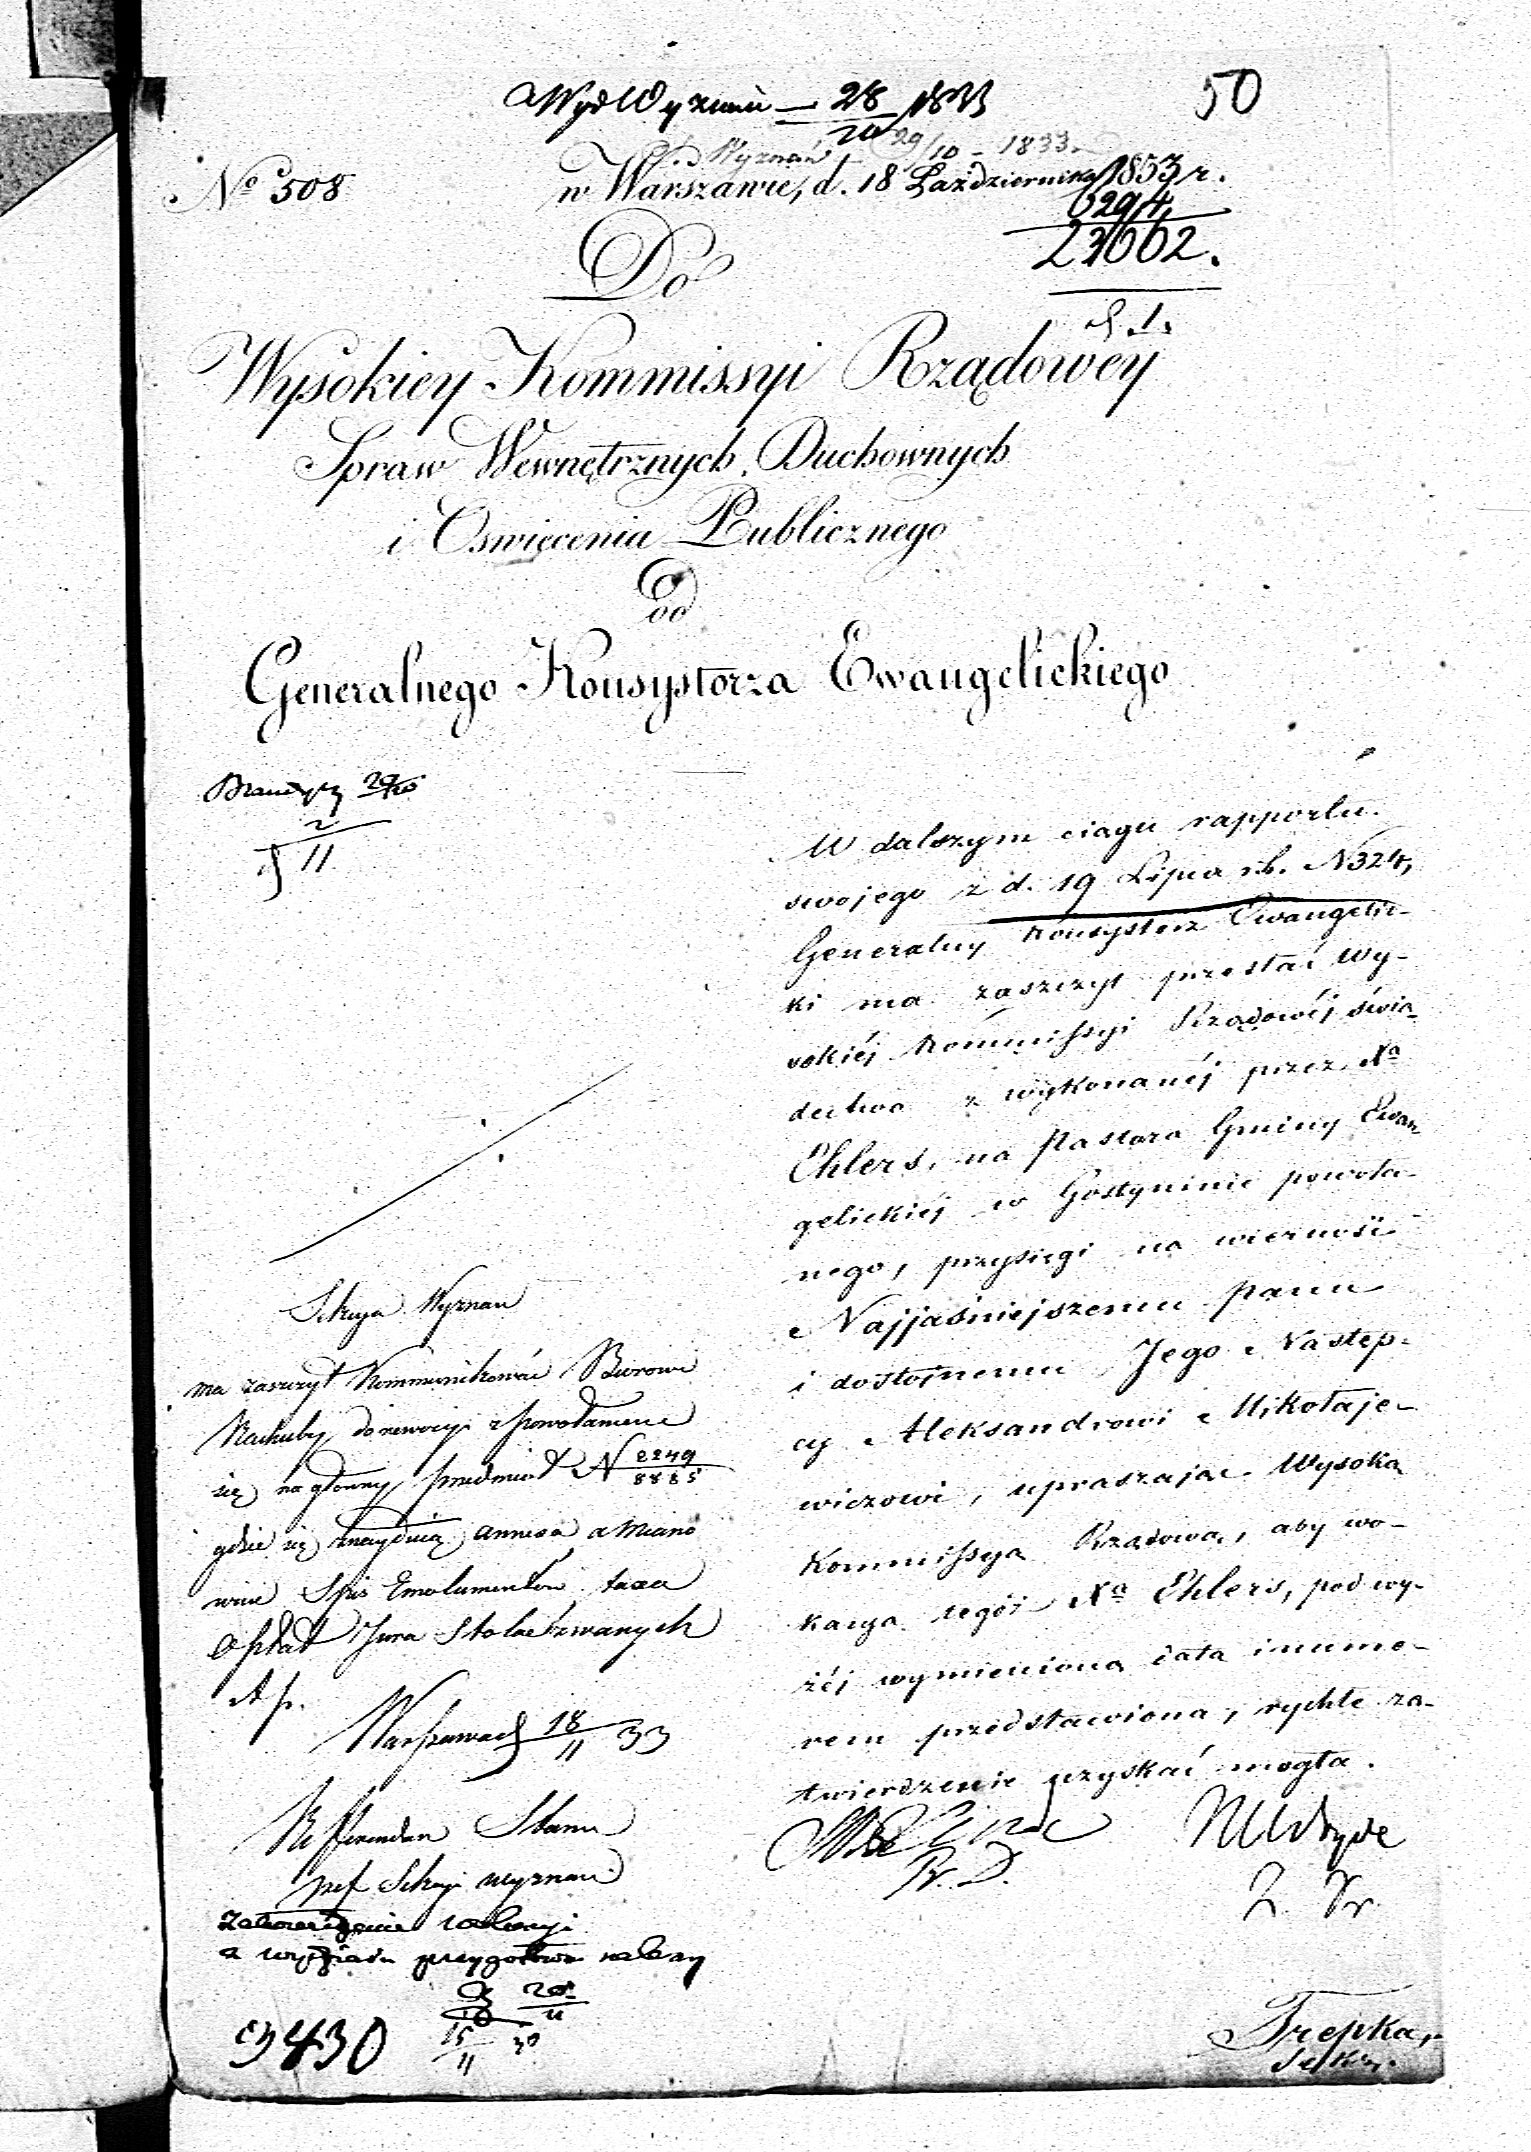 50
28 1833
Wyznań 29/10 - 1833.
No 508
w Warszawie, d. 18 Października 1833 r.
6294
23662.
Do
Wysokiey Kommissyi Rządowey
Spraw Wewnętrznych, Duchownych
i Oswięcenia Publicznego
od
Generalnego Konsystorza Ewangelickiego
29/10
2
11
W dalszym ciągu rapportu
swojego z d. 19 Lipca r.b. N 324,
Generalny Konsystorz Ewangelic-
ki ma zaszczyt przesłać Wy-
sokiéj Kommissyi Rządowéj świa-
dectwo z wykonanéj przez Xa
Ehlers, na Pastora Gminy Ewan-
gelickiéj w Gostyninie powoła-
nego, przysięgi na wierność
Najjaśniejszemu Panu
i dostojnemu Jego Następ-
cy Aleksandrowi Mikołaje-
wiczowi, upraszając Wysoką
Kommissyą Rządową, aby wo-
kacya tegoż Xa Ehlers, pod wy-
żéj wymienioną datą i nume-
rem przedstawiona, rychłe za-
twierdzenie uzyskać mogła.
Pr. D.
Trepka,
Sekr.
Sekcya Wyznań
ma zaszczyt kommunikować Biurowi
Rachuby z powołaniem
się na główny przedmiot N 2249
8885
gdzie się znayduią annexa a miano
wicie Spis Emolumentów taxa
opłat Jura Stolae zwanych
Warszawa d 18/11 33
Refferendarz Stanu
Sekcyi Wyznań
Zatwierdzenie wokacyi
z przygotować należy
20
11
15
11
3430